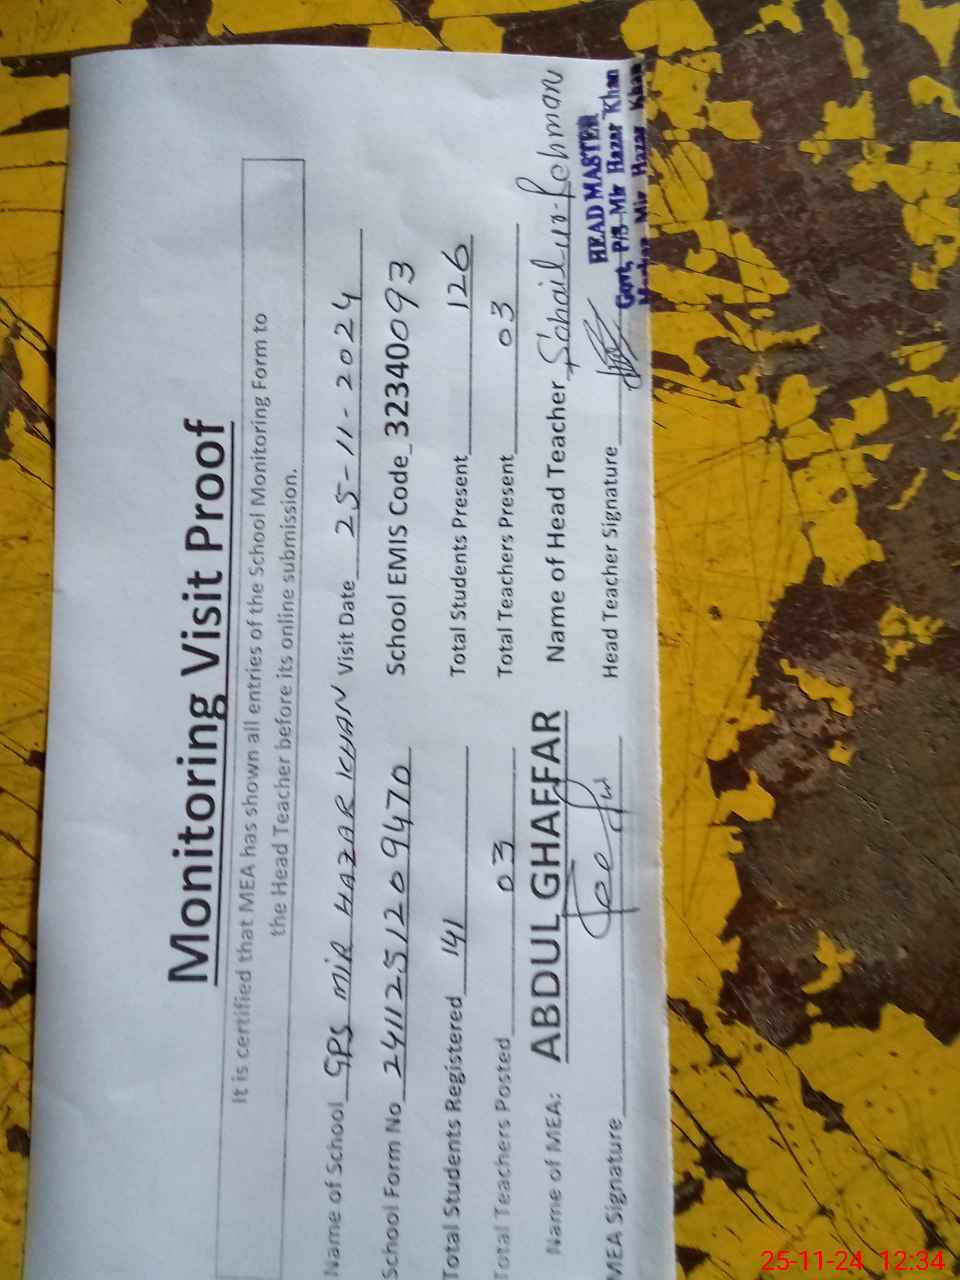 Monitoring Visit Proof
It is certified that MEA has shown all entries of the School Monitoring Form to
the Head Teacher before its online submission.
Name of School GPS MIR HAZAR KHAN Visit Date 25-11-2024
School Form No 2411251209470 School EMIS Code 32340093
Total Students Registered 141 Total Students Present 126
Total Teachers Posted 03 Total Teachers Present 03
Name of MEA: ABDUL GHAFFAR Name of Head Teacher Sohail-ur-Rehman
MEA Signature Head Teacher Signature
HEAD MASTER
Govt, P/S Mir Hazar Khan
Mir Hazar Khan
25-11-24 12:34